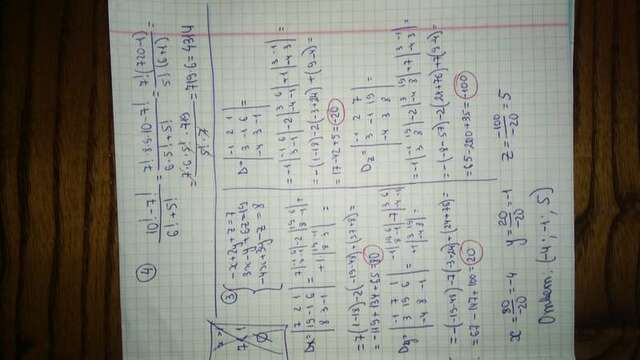 ④
10! - 7! / 6! + 5! = 7!·8·9·10 - 7! / 6·5! + 5! = 7!(720-1) / 5!(6+1) =
= 7·6·5!·719 / 5!·7 = 719·6 = 4314
③ { -x+2y+z=7
3x-y+6z=19
-4x+3y-z=8
D= | -1 2 1
3 -1 6
-4 3 -1 | =
= -1 | -1 6
3 -1 | -2 | 3 6
-4 -1 | +1 | 3 -1
-4 3 | =
= -(1-18)-2(-3+24)+(9-4)=
= 17-42+5=-20
Dx= | 7 2 1
19 -1 6
8 3 -1 | = 7 | -1 6
3 -1 | -2 | 19 6
8 -1 | +
+1 | 19 -1
8 3 | =
= 7(1-18)-2(-19-48)+(57+8)=
= -119+134+65=80
Dy= | -1 7 1
3 19 6
-4 8 -1 | = -1 | 19 6
8 -1 | -7 | 3 6
-4 -1 | +
+1 | 3 19
-4 8 | =
= -(-19-48)-7(-3+24)+(24+76)=
= 67-147+100=20
Dz= | -1 2 7
3 -1 19
-4 3 8 | =
= -1 | -1 19
3 8 | -2 | 3 19
-4 8 | +7 | 3 -1
-4 3 | =
= -(-8-57)-2(24+76)+7(9-4)=
= 65-200+35=-100
x= 80 / -20 = -4 y= 20 / -20 = -1 z= -100 / -20 = 5
Ответ: (-4; -1; 5)